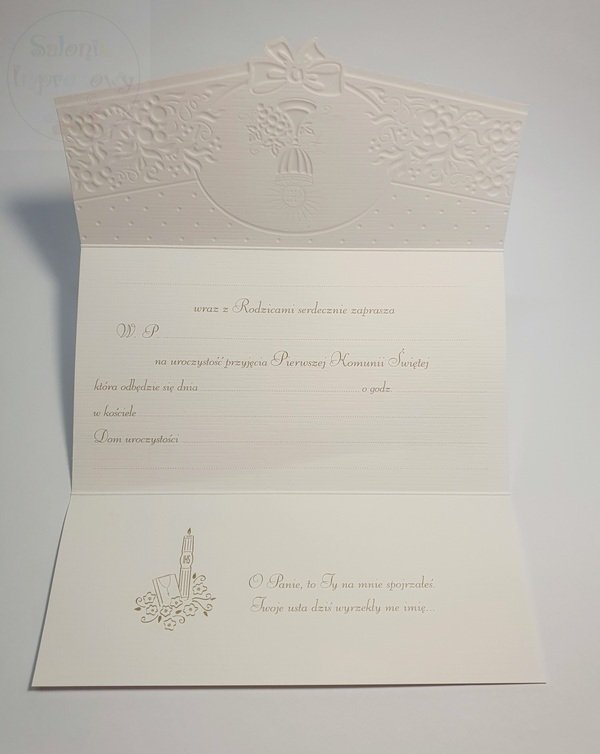 Salonik
Imprezowy
wraz z Rodzicami serdecznie zaprasza
W. P.
na uroczystość przyjęcia Pierwszej Komunii Świętej
która odbędzie się dnia o godz.
w kościele
Dom uroczystości
O Panie, to Ty na mnie spojrzałeś.
Twoje usta dziś wyrzekły me imię...